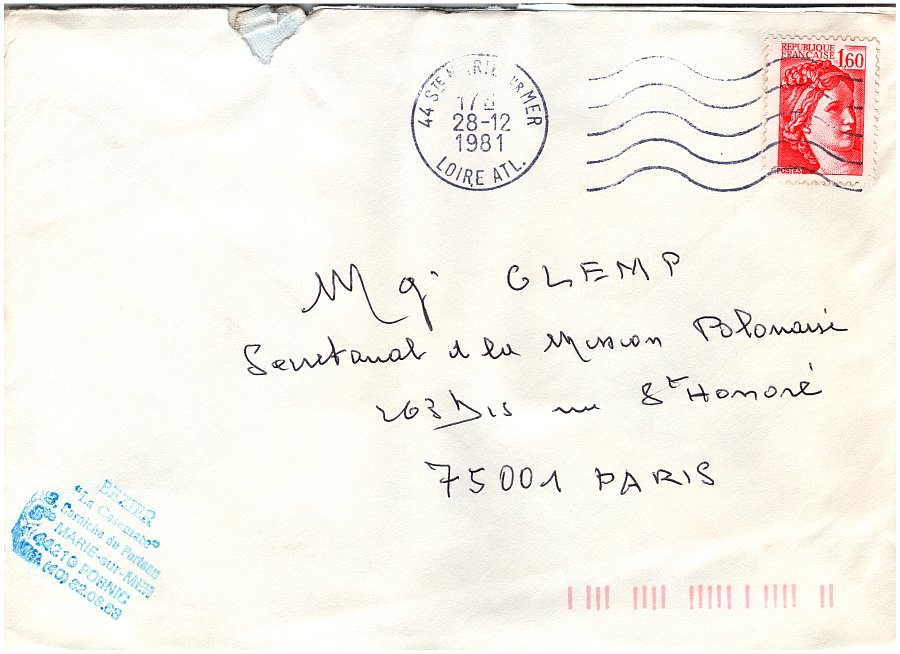 44 STE MARIE SUR MER
28-12
1981
LOIRE ATL.
REPUBLIQUE
FRANÇAISE 1,60
POSTES
Mgr GLEMP
Secretariat de la Mission Polonaise
263 bis rue St Honoré
75001 PARIS
BEZIER
"La
Corniche du
Ste MARIE-sur-MER
44210 PORNIC
(40) 82.08.63